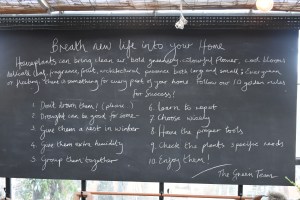 Breath new life into your Home
Houseplants can bring clean air bold greenery, colourful flower, and blooms
delicate leaf, fragrance, fruit, architectural presence both large and small; Evergreen
or fleeting. There is something for every part of your home. Follow our 10 golden rules
for Success!
1 Don't drown them! (please)
2 Drought can be good for some-
3 Give them a rest in winter
4 Give them extra humidity
5 Group them together
6. learn to repot
7 Choose wisely
8 Have the proper tools
9 Check the plants specific needs
10. Enjoy them!
The Green Team